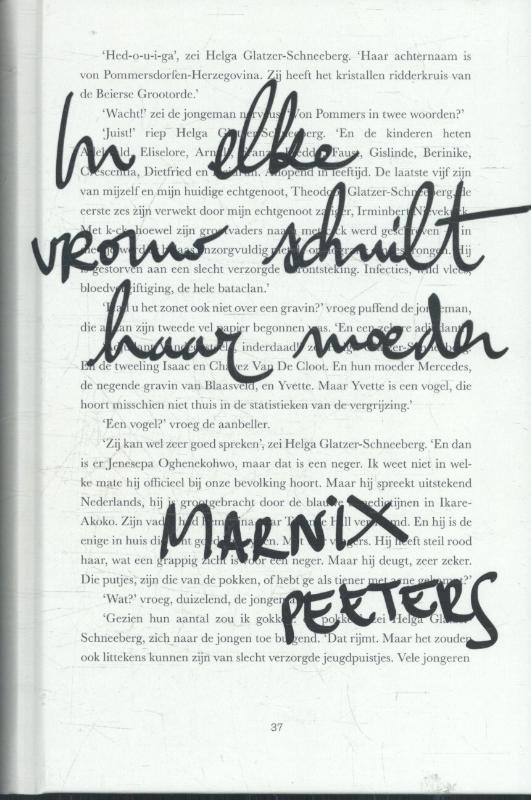 ‘Hed-o-u-i-ga’, zei Helga Glatzer-Schneeberg. ‘Haar achternaam is
von Pommersdorfen-Herzegovina. Zij heeft het kristallen ridderkruis van
de Beierse Grootorde.’
In elke
vrouw schuilt
haar moeder
‘Wacht!’ zei de jongeman nerveus. ‘Von Pommers in twee woorden?’
‘Juist!’ riep Helga Glatzer-Schneeberg. ‘En de kinderen heten
Eliselore, Faust, Gislinde, Berinike,
Crescentia, Dietfried en Aflopend in leeftijd. De laatste vijf zijn
van mijzelf en mijn huidige echtgenoot, Theodor Glatzer-Schneeberg, de
eerste zes zijn verwekt door mijn echtgenoot zaliger, Irminbert
Met k-ck, hoewel zijn grootvaders naam met ck werd geschreven in
Hij
is gestorven aan een slecht verzorgde Infecties, wild vlees,
bloedvergiftiging, de hele bataclan.’
u het zonet ook niet over een gravin?’ vroeg puffend de jongeman,
die aan zijn tweede vel papier begonnen was.
inderdaad!’
En de tweeling Isaac en Chavez Van De Cloot. En hun moeder Mercedes,
de negende gravin van Blaasveld, en Yvette. Maar Yvette is een vogel, die
hoort misschien niet thuis in de statistieken van de vergrijzing.’
‘Een vogel?’ vroeg de aanbeller.
‘Zij kan wel zeer goed spreken’, zei Helga Glatzer-Schneeberg. ‘En dan
is er Jenesepa Oghenekohwo, maar dat is een neger. Ik weet niet in wel-
ke mate hij officieel bij onze bevolking hoort. Maar hij spreekt uitstekend
Nederlands, hij is grootgebracht door de blauwe benedictijnen in Ikare-
Akoko. Zijn vader En hij is de
enige in huis die Met Hij heeft steil rood
haar, wat een grappig zicht is voor een neger. Maar hij deugt, zeer zeker.
Die putjes, zijn die van de pokken, of hebt ge als tiener met acne gekampt?’
MARNIX
PEETERS
‘Wat?’ vroeg, duizelend, de jongeman.
‘Gezien hun aantal zou ik gokken op pokken’, zei Helga Glatzer-
Schneeberg, zich naar de jongen toe buigend. ‘Dat rijmt. Maar het zouden
ook littekens kunnen zijn van slecht verzorgde jeugdpuistjes. Vele jongeren
37